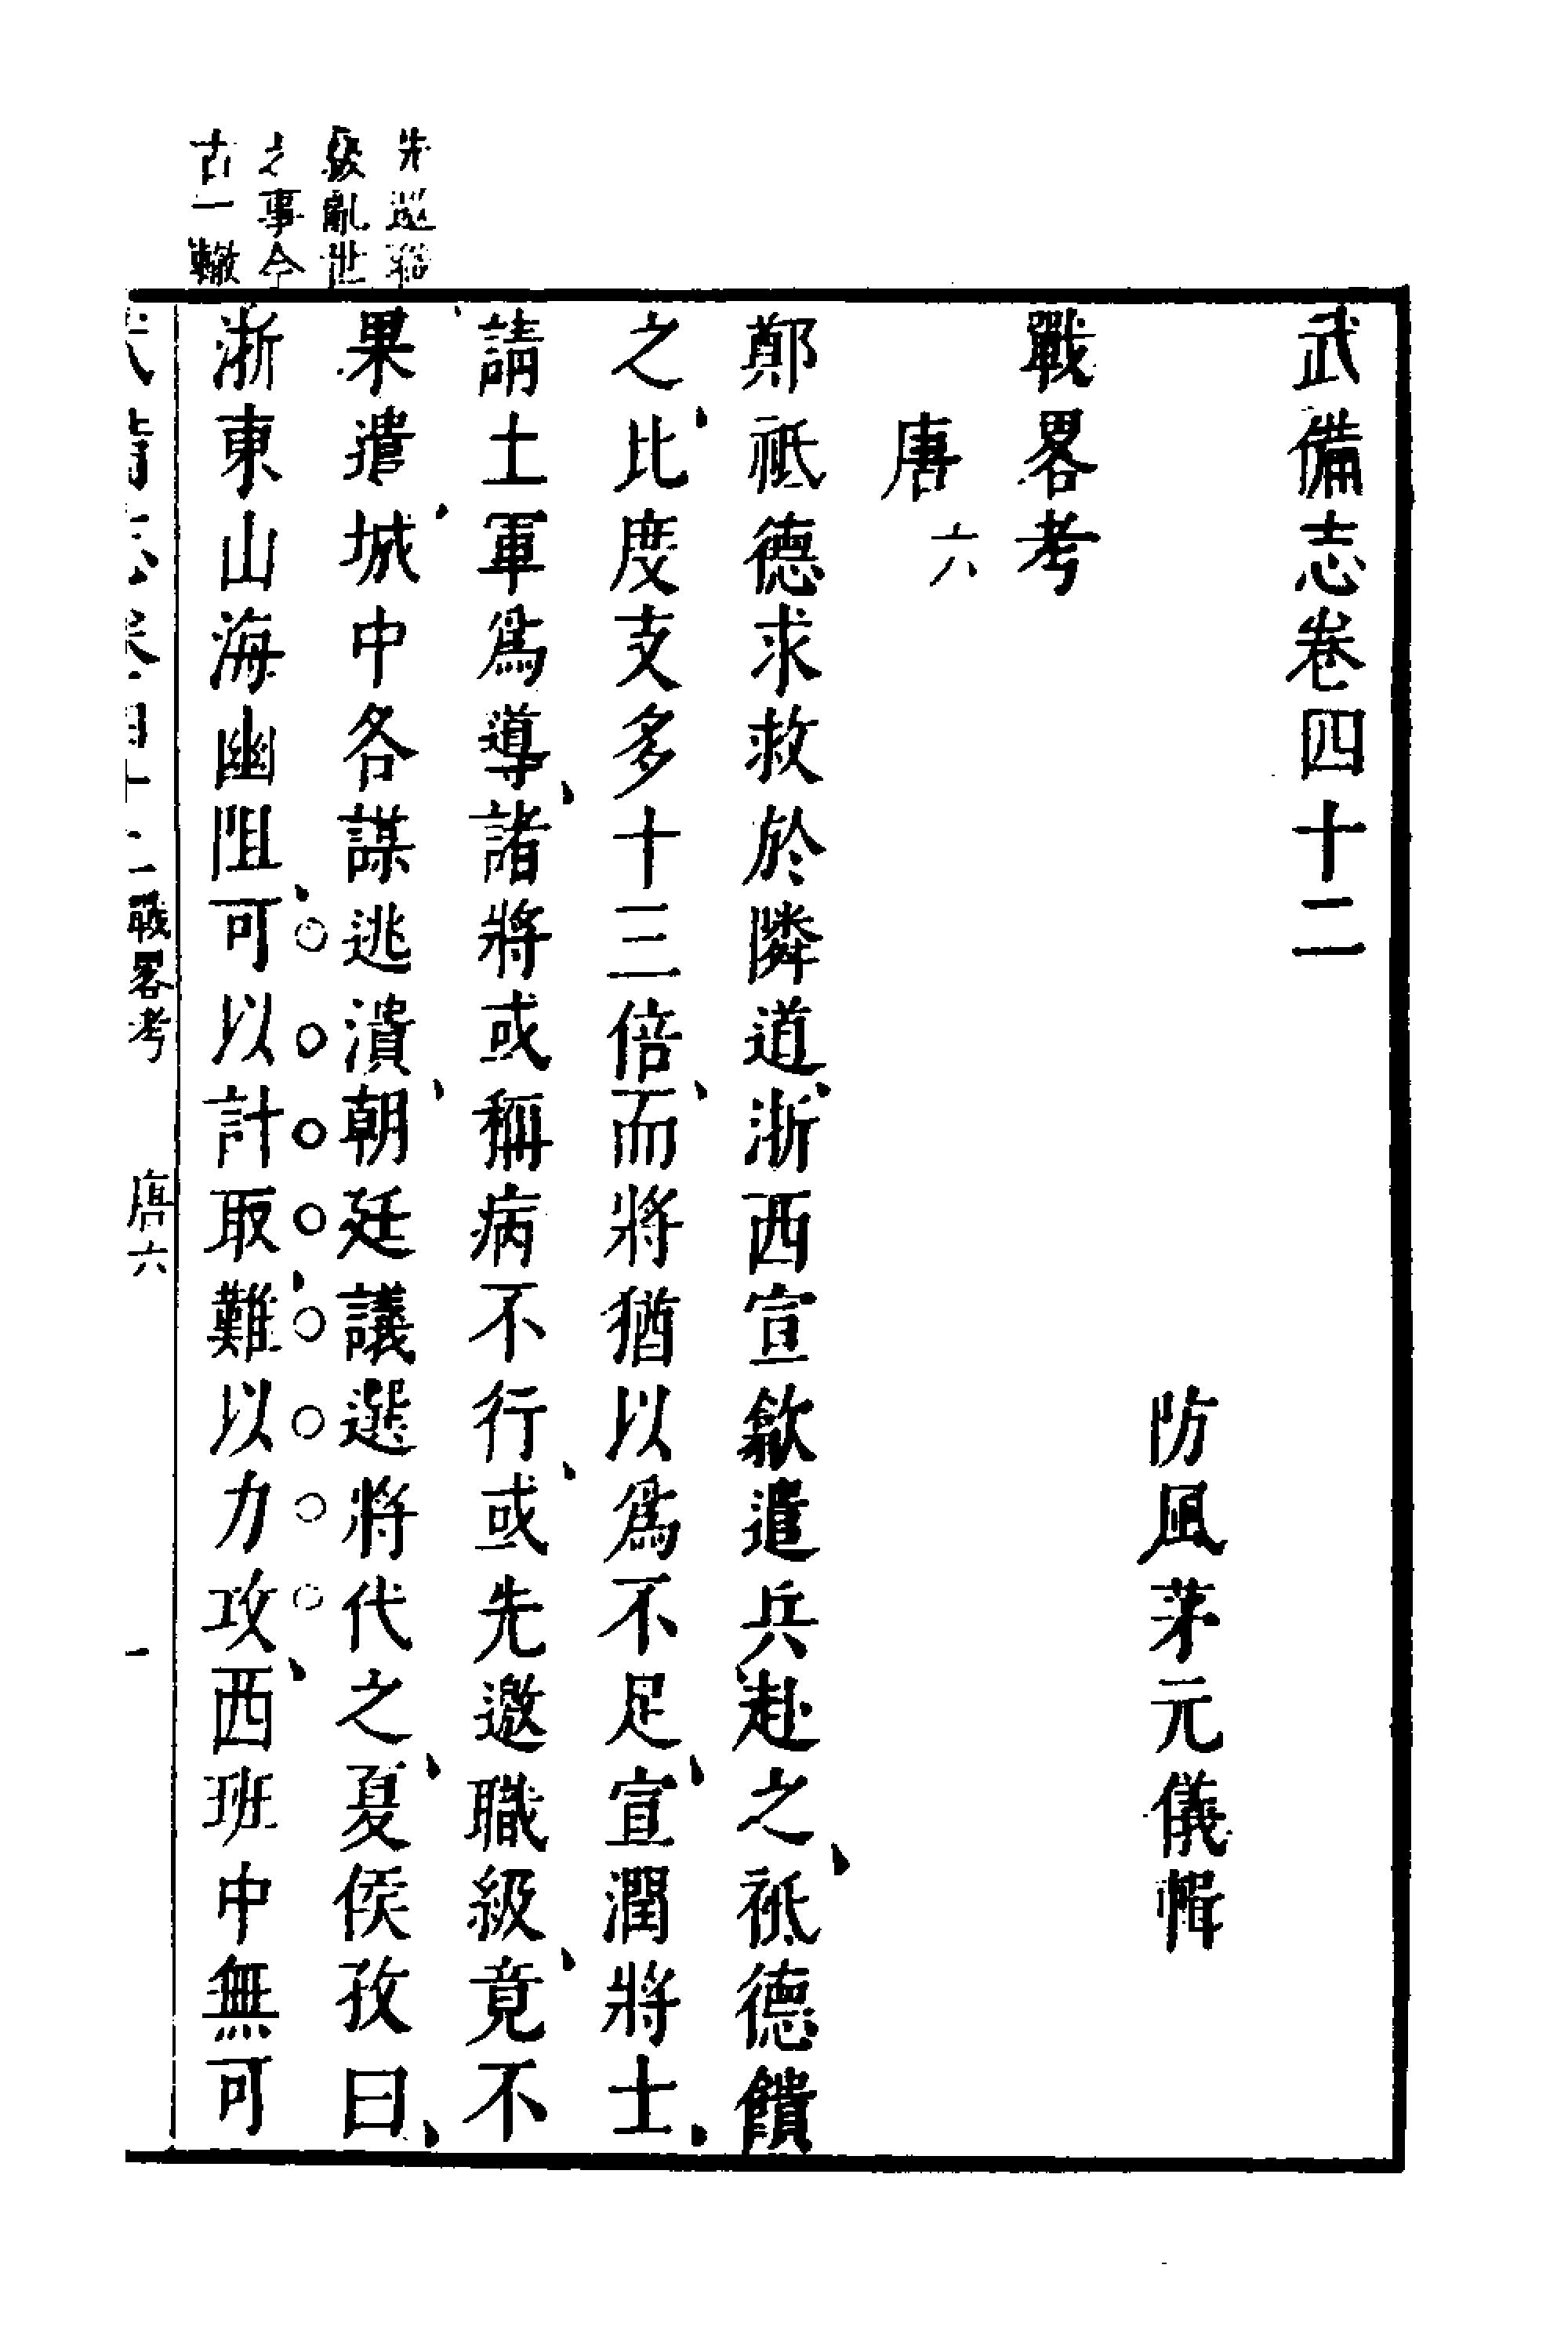 武備志卷四十二
防風茅元儀輯
戰畧考
唐六
鄭祗德求救於隣道浙西宣歙遣兵赴之祗德饋
之比度支多十三倍而將猶以為不足宣潤將士
請土軍爲導諸將或稱病不行或先邀職級竟不
果遣城中各謀逃潰朝廷議選將代之夏侯孜曰
浙東山海幽阻可以計取難以力攻西班中無可
先邀職
級亂世
之事今
古一轍
武備志卷四十二戰畧考 唐六 一